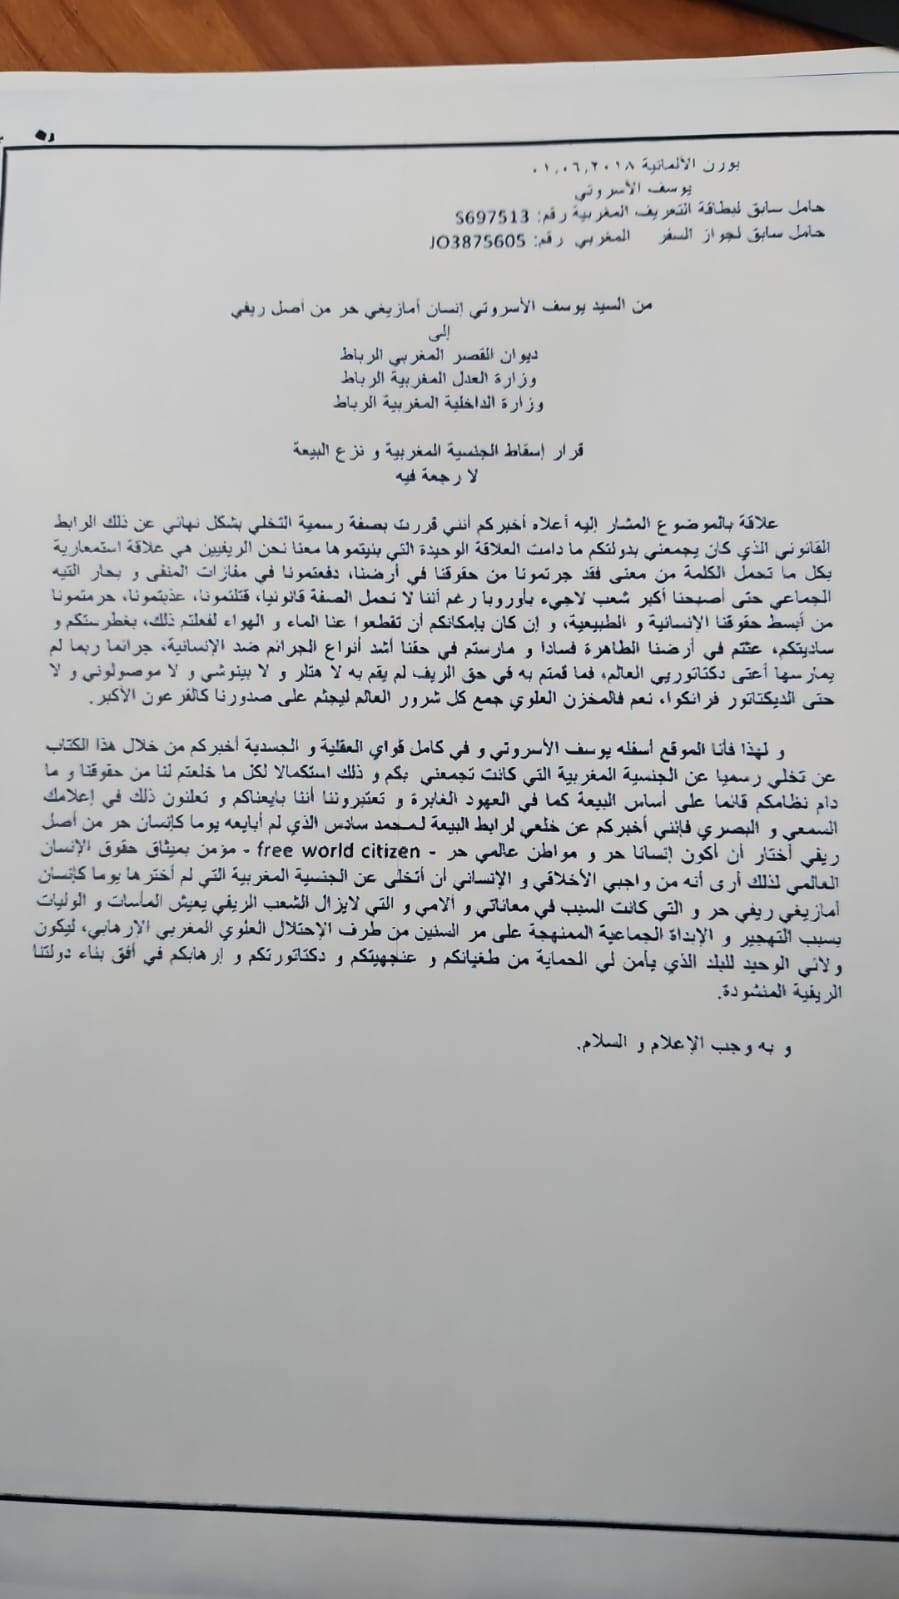 بورن الألمانية ٠١,٠٦,٢٠١٨
يوسف الأسروتي
حامل سابق لبطاقة التعريف المغربية رقم: S697513
حامل سابق لجواز السفر المغربي رقم: JO3875605
من السيد يوسف الأسروتي إنسان أمازيغي حر من أصل ريفي
إلى
ديوان القصر المغربي الرباط
وزارة العدل المغربية الرباط
وزارة الداخلية المغربية الرباط
قرار إسقاط الجنسية المغربية و نزع البيعة
لا رجعة فيه
علاقة بالموضوع المشار إليه أعلاه أخبركم أنني قررت بصفة رسمية التخلي بشكل نهائي عن ذلك الرابط
القانوني الذي كان يجمعني بدولتكم ما دامت العلاقة الوحيدة التي بنيتموها معنا نحن الريفيين هي علاقة استعمارية
بكل ما تحمل الكلمة من معنى فقد جرتمونا من حقوقنا في أرضنا، دفعتمونا في مفازات المنفى و بحار التيه
الجماعي حتى أصبحنا أكبر شعب لاجيء بأوروبا رغم أننا لا نحمل الصفة قانونيا، قتلتمونا، عذبتمونا، حرمتمونا
من أبسط حقوقنا الإنسانية و الطبيعية، و إن كان بإمكانكم أن تقطعوا عنا الماء و الهواء لفعلتم ذلك، بغطرستكم و
ساديتكم، عثتم في أرضنا الطاهرة فسادا و مارستم في حقنا أشد أنواع الجرائم ضد الإنسانية، جرائما ربما لم
يمارسها أعتى دكتاتوريي العالم، فما قمتم به في حق الريف لم يقم به لا هتلر و لا بينوشي و لا موصولوني و لا
حتى الديكتاتور فرانكوا، نعم فالمخزن العلوي جمع كل شرور العالم ليجثم على صدورنا كالفرعون الأكبر.
و لهذا فأنا الموقع أسفله يوسف الأسروتي و في كامل قواي العقلية و الجسدية أخبركم من خلال هذا الكتاب
عن تخلي رسميا عن الجنسية المغربية التي كانت تجمعني بكم و ذلك استكمالا لكل ما خلعتم لنا من حقوقنا و ما
دام نظامكم قائما على أساس البيعة كما في العهود الغابرة و تعتبروننا أننا بايعناكم و تعلنون ذلك في إعلامك
السمعي و البصري فإنني أخبركم عن خلعي لرابط البيعة لمحمد سادس الذي لم أبايعه يوما كإنسان حر من أصل
ريفي أختار أن أكون إنسانا حر و مواطن عالمي حر - free world citizen - مؤمن بميثاق حقوق الإنسان
العالمي لذلك أرى أنه من واجبي الأخلاقي و الإنساني أن أتخلى عن الجنسية المغربية التي لم أخترها يوما كإنسان
أمازيغي ريفي حر و التي كانت السبب في معاناتي و آلامي و التي لايزال الشعب الريفي يعيش المأسات و الوليات
بسبب التهجير و الإبداة الجماعية الممنهجة على مر السنين من طرف الإحتلال العلوي المغربي الإرهابي، ليكون
ولائي الوحيد للبلد الذي يأمن لي الحماية من طغيانكم و عنجهيتكم و دكتاتورتكم و إرهابكم في أفق بناء دولتنا
الريفية المنشودة.
و به وجب الإعلام و السلام.